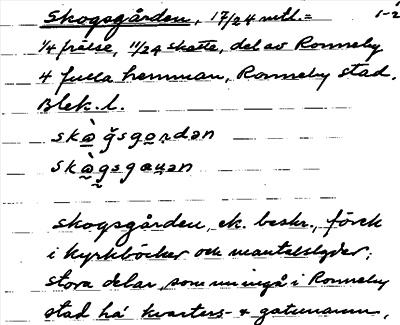 Skogsgården, 17/24 mtl.= 1-2
1/4 frälse, 11/24 skatte, del av Ronneby
4 fulla hemman, Ronneby stad.
Blek. l.
skogsgården, ek. beskr., förek
i kyrkböcker och mantalslgder;
stora delar, som nu ingå i Ronneby
stad ha kvarters- & gatunamn,